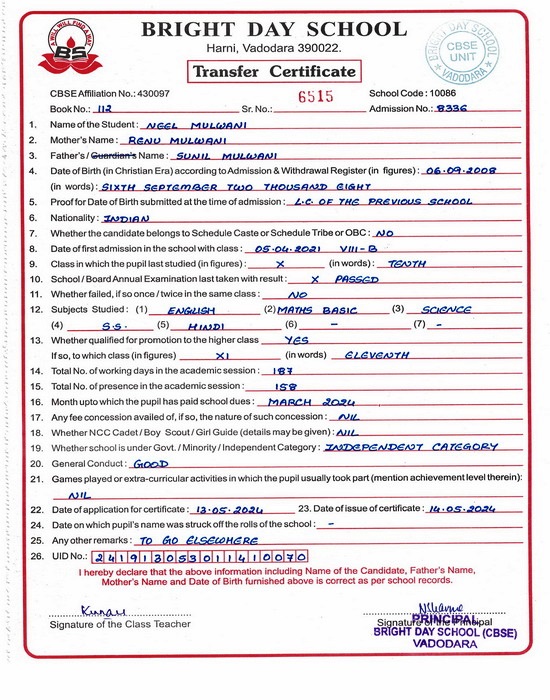 A WILL WILL FIND A WAY
BS
BRIGHT DAY SCHOOL
Harni, Vadodara 390022.
Transfer Certificate
BRIGHT DAY SCHOOL
CBSE
UNIT
VADODARA
CBSE Affiliation No.: 430097 6515 School Code : 10086
Book No.: 112 Sr. No.: Admission No.: 8336
1. Name of the Student : NEEL MULWANI
2. Mother's Name : RENU MULWANI
3. Father's / Guardian's Name : SUNIL MULWANI
4. Date of Birth (in Christian Era) according to Admission & Withdrawal Register (in figures) : 06.09.2008
(in words) : SIXTH SEPTEMBER TWO THOUSAND EIGHT
5. Proof for Date of Birth submitted at the time of admission : L.C. OF THE PREVIOUS SCHOOL
6. Nationality : INDIAN
7. Whether the candidate belongs to Schedule Caste or Schedule Tribe or OBC : NO
8. Date of first admission in the school with class : 05.04.2021 VIII-B
9. Class in which the pupil last studied (in figures) : X (in words) : TENTH
10. School / Board Annual Examination last taken with result : X PASSED
11. Whether failed, if so once / twice in the same class : NO
12. Subjects Studied : (1) ENGLISH (2) MATHS BASIC (3) SCIENCE
(4) S.S. (5) HINDI (6) - (7) -
13. Whether qualified for promotion to the higher class YES
If so, to which class (in figures) XI (in words) ELEVENTH
14. Total No. of working days in the academic session : 187
15. Total No. of presence in the academic session : 158
16. Month upto which the pupil has paid school dues : MARCH 2024
17. Any fee concession availed of, if so, the nature of such concession : NIL
18. Whether NCC Cadet / Boy Scout / Girl Guide (details may be given) : NIL
19. Whether school is under Govt. / Minority / Independent Category : INDEPENDENT CATEGORY
20. General Conduct : GOOD
21. Games played or extra-curricular activities in which the pupil usually took part (mention achievement level therein) :
NIL
22. Date of application for certificate : 13.05.2024 23. Date of issue of certificate : 14.05.2024
24. Date on which pupil's name was struck off the rolls of the school : -
25. Any other remarks : TO GO ELSEWHERE
26. UID No.: 241913053011410070
I hereby declare that the above information including Name of the Candidate, Father's Name,
Mother's Name and Date of Birth furnished above is correct as per school records.
Signature of the Class Teacher Signature of the Principal
PRINCIPAL
BRIGHT DAY SCHOOL (CBSE)
VADODARA